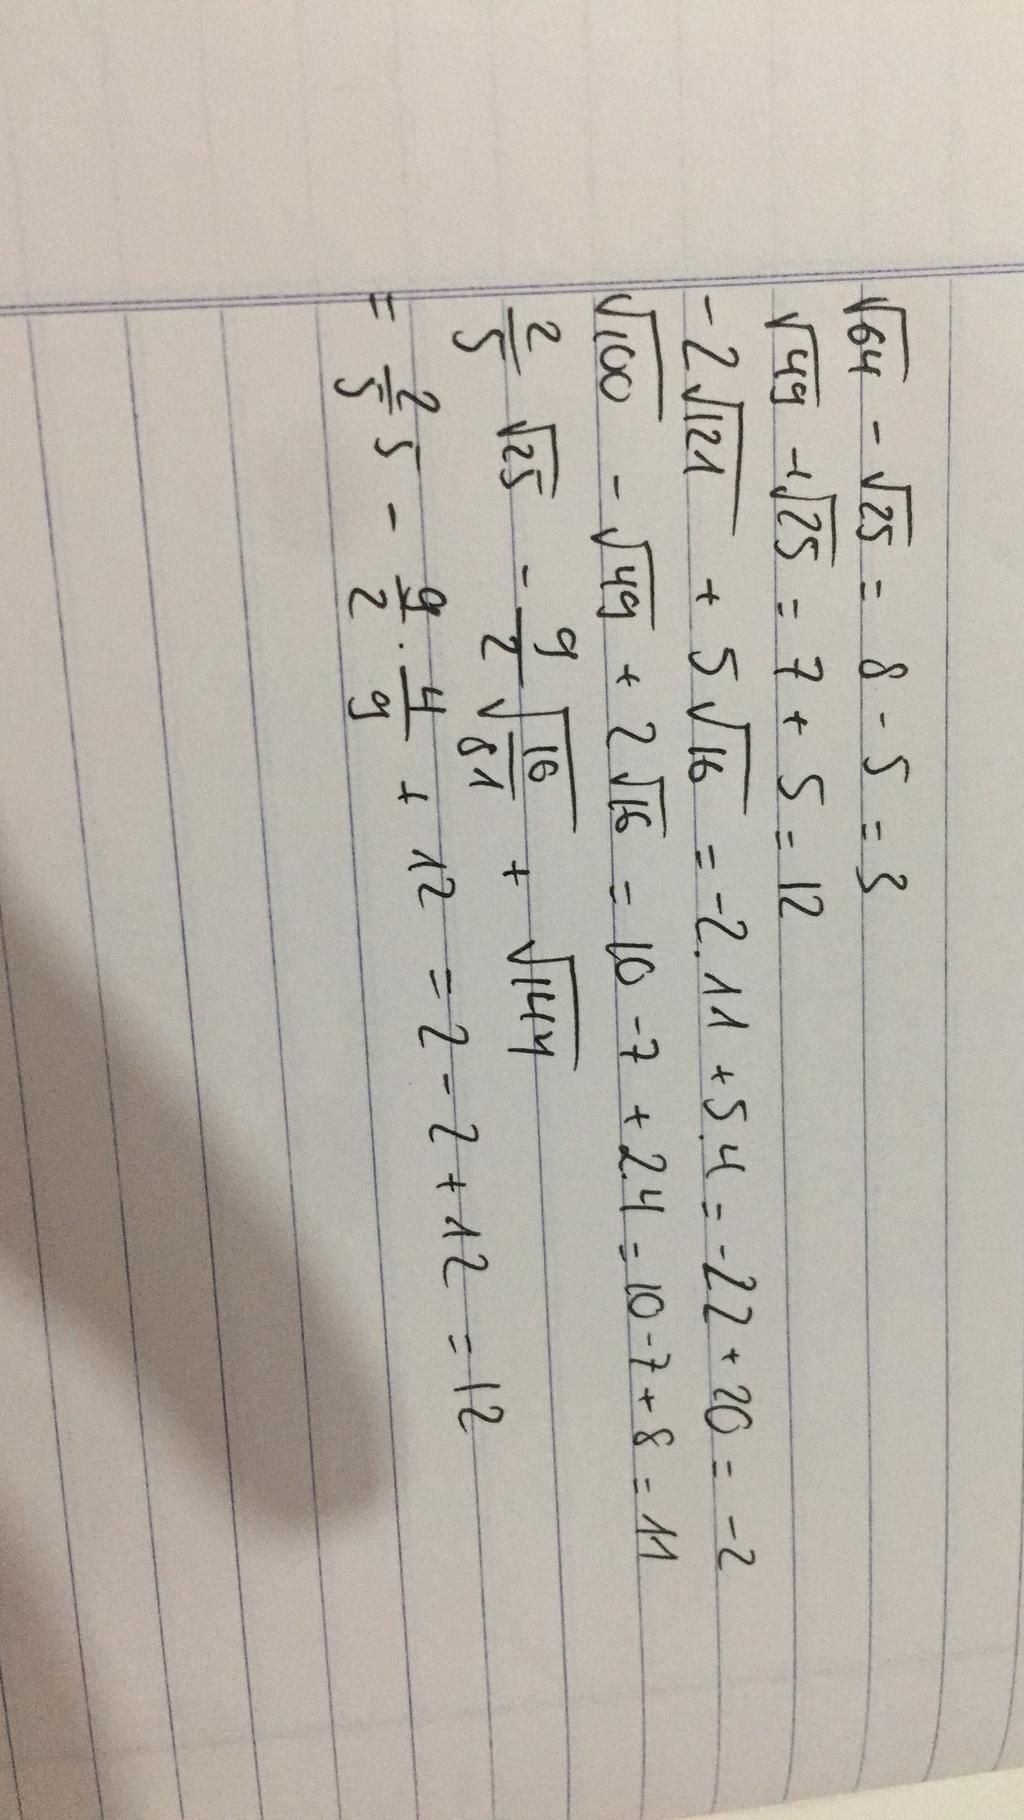 √64 - √25 = 8 - 5 = 3
√49 + √25 = 7 + 5 = 12
-2√121 + 5√16 = -2.11 + 5.4 = -22 + 20 = -2
√100 - √49 + 2√16 = 10 - 7 + 2.4 = 10 - 7 + 8 = 11
2/5 √25 - 9/2 √16/81 + √144
= 2/5 5 - 9/2 · 4/9 + 12 = 2 - 2 + 12 = 12